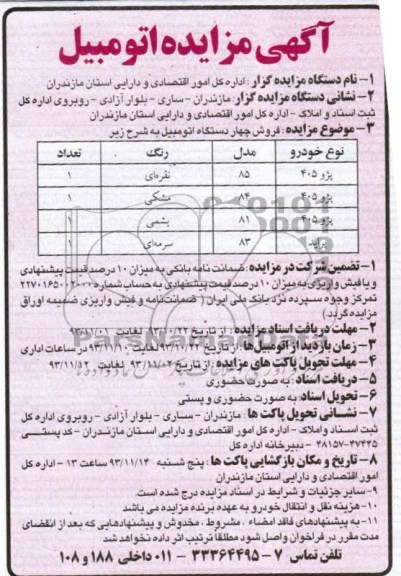 آگهی مزایده اتومبیل
۱- نام دستگاه مزایده گزار : اداره کل امور اقتصادی و دارایی استان مازندران
۲- نشانی دستگاه مزایده گزار : مازندران - ساری - بلوار آزادی - روبروی اداره کل
ثبت اسناد و املاک - اداره کل امور اقتصادی و دارایی استان مازندران
۳- موضوع مزایده : فروش چهار دستگاه اتومبیل به شرح زیر
نوع خودرو مدل رنگ تعداد
پژو ۴۰۵ ۸۵ نقره‌ای ۱
پژو ۴۰۵ ۸۴ مشکی ۱
پژو ۴۰۵ ۸۱ یشمی ۱
پراید ۸۳ سرمه‌ای ۱
۱- تضمین شرکت در مزایده : ضمانت نامه بانکی به میزان ۱۰ درصد قیمت پیشنهادی
و یا فیش واریزی به میزان ۱۰ درصد قیمت پیشنهادی به حساب شماره ۲۲۷۰۱۶۵۰۰۲۰۰۰
تمرکز وجوه سپرده نزد بانک ملی ایران ( ضمانت نامه و فیش واریزی ضمیمه اوراق
مزایده گردد)
۲- مهلت دریافت اسناد مزایده : از تاریخ لغایت
۳- زمان بازدید از اتومبیل‌ها : از تاریخ لغایت ۹۳/۱۱/۱۰ در ساعات اداری
۴- مهلت تحویل پاکت های مزایده : از تاریخ ۹۳/۱۱/۰۲ لغایت ۹۳/۱۱/۱۲
۵- دریافت اسناد : به صورت حضوری
۶- تحویل اسناد: به صورت حضوری و پستی
۷- نشانی تحویل پاکت ها : مازندران - ساری - بلوار آزادی - روبروی اداره کل
ثبت اسناد و املاک - اداره کل امور اقتصادی و دارایی استان مازندران - کد پستی
۴۷۴۴۵-۴۸۱۵۷ - دبیرخانه اداره کل
۸- تاریخ و مکان بازگشایی پاکت ها : پنج شنبه ۹۳/۱۱/۱۴ ساعت ۱۳ - اداره کل
امور اقتصادی و دارایی استان مازندران
۹- سایر جزئیات و شرایط در اسناد مزایده درج شده است.
۱۰- هزینه نقل و انتقال خودرو به عهده برنده مزایده می باشد.
۱۱- به پیشنهادهای فاقد امضاء ، مشروط ، مخدوش و پیشنهادهایی که بعد از انقضای
مدت مقرر در فراخوان واصل شود مطلقا ترتیب اثر داده نخواهد شد
تلفن تماس ۷- ۳۳۳۶۴۴۹۵ - ۰۱۱ داخلی ۱۸۸ و ۱۰۸